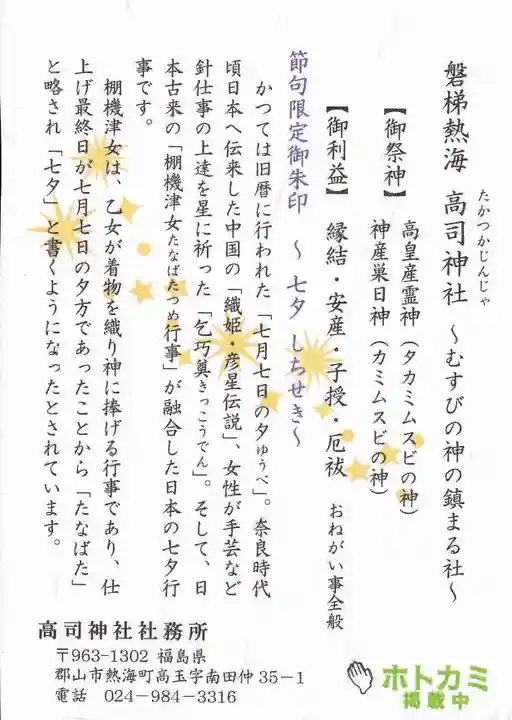 磐梯熱海　高司神社　～むすびの神の鎮まる社～
たかつかじんじゃ
【御祭神】　高皇産霊神（タカミムスビの神）
神産巣日神（カミムスビの神）
【御利益】　縁結・安産・子授・厄祓　おねがい事全般
節句限定御朱印　～　七夕　しちせき～
かつては旧暦に行われた「七月七日の夕ゆうべ」。奈良時代
頃日本へ伝来した中国の「織姫・彦星伝説」、女性が手芸など
針仕事の上達を星に祈った「乞巧奠きっこうでん」。そして、日
本古来の「棚機津女たなばたつめ行事」が融合した日本の七夕行
事です。
棚機津女は、乙女が着物を織り神に捧げる行事であり、仕
上げ最終日が七月七日の夕方であったことから「たなばた」
と略され「七夕」と書くようになったとされています。
高司神社社務所
〒963-1302 福島県
郡山市熱海町高玉字南田仲 35－1
電話　024－984－3316
ホトカミ
掲載中